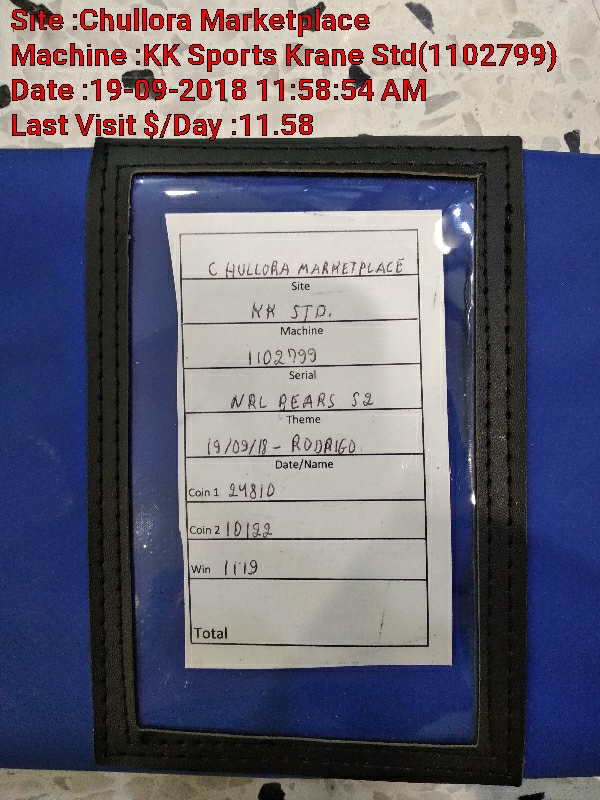 Site :Chullora Marketplace
Machine :KK Sports Krane Std(1102799)
Date :19-09-2018 11:58:54 AM
Last Visit $/Day :11.58
CHULLORA MARKETPLACE
Site
KK STD.
Machine
1102799
Serial
NRL BEARS S2
Theme
19/09/18 - RODRIGO
Date/Name
Coin 1 24810
Coin 2 10122
Win 1119
Total